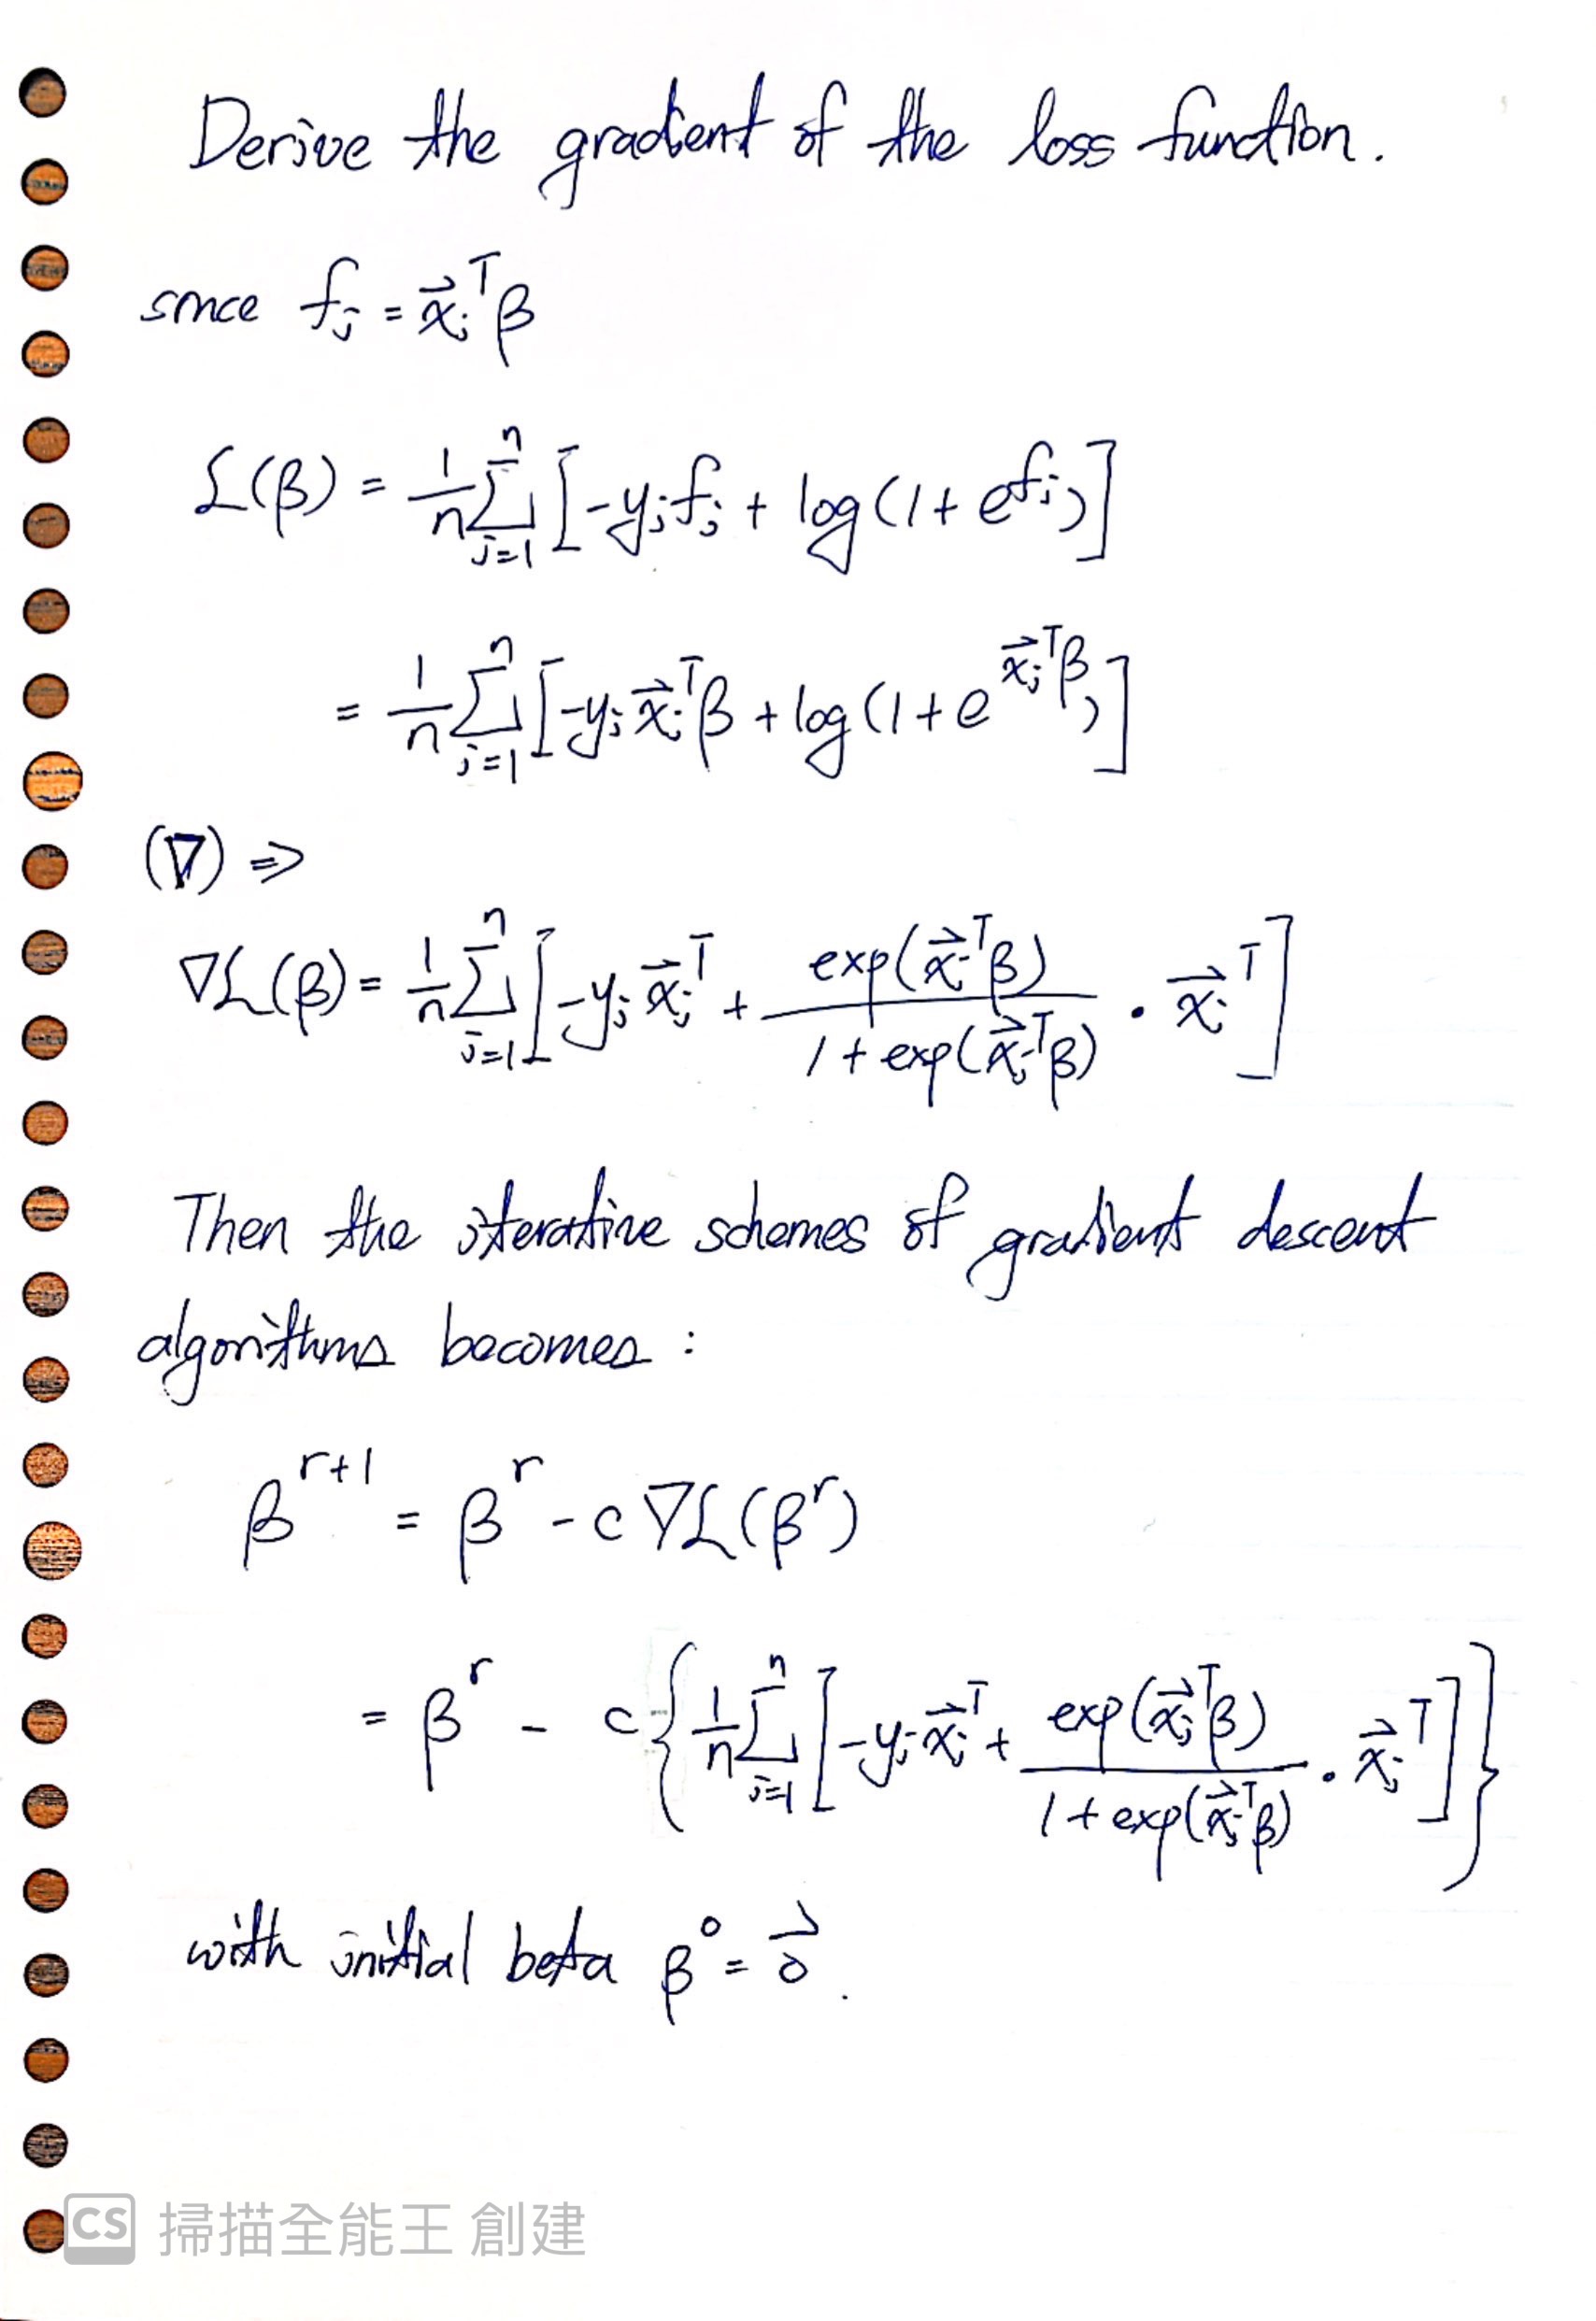 Derive the gradient of the loss function.
since f_j = \vec{x}_j^T β
L(β) = \frac{1}{n} \sum_{j=1}^{n} [-y_j f_j + log(1 + e^{f_j})]
= \frac{1}{n} \sum_{j=1}^{n} [-y_j \vec{x}_j^T β + log(1 + e^{\vec{x}_j^T β})]
(∇) ⇒
∇L(β) = \frac{1}{n} \sum_{j=1}^{n} [-y_j \vec{x}_j^T + \frac{exp(\vec{x}_j^T β)}{1 + exp(\vec{x}_j^T β)} · \vec{x}_j^T]
Then the iterative schemes of gradient descent
algorithms becomes :
β^{r+1} = β^r - c ∇L(β^r)
= β^r - c { \frac{1}{n} \sum_{j=1}^{n} [-y_j \vec{x}_j^T + \frac{exp(\vec{x}_j^T β)}{1 + exp(\vec{x}_j^T β)} · \vec{x}_j^T] }
with initial beta β^0 = \vec{0}.
CS 掃描全能王 創建